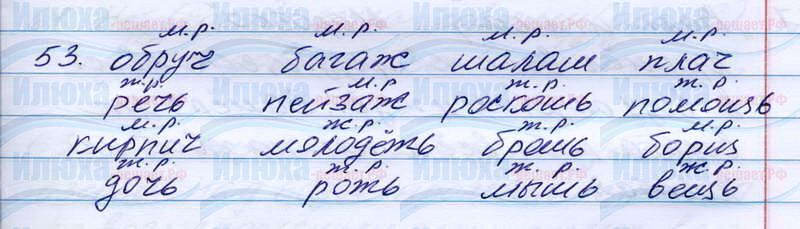 м.р. м.р. м.р. м.р.
53. обруч багаж шалаш плач
ж.р. м.р. ж.р. ж.р.
речь пейзаж роскошь помощь
м.р. ж.р. ж.р. м.р.
кирпич молодёжь брошь борщ
ж.р. ж.р. ж.р. ж.р.
дочь рожь мышь вещь